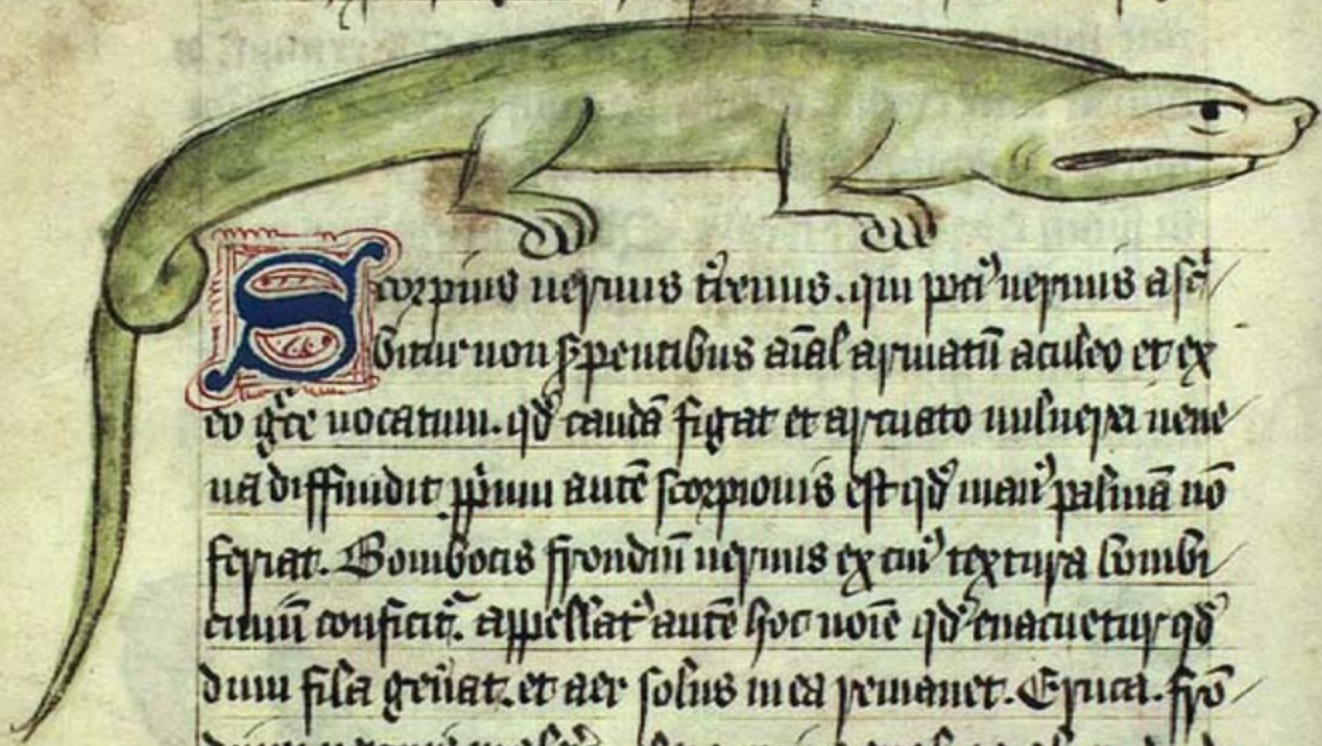 Scorpius uermis t̄renus. qui poti᷒ uermis ascͥ
bitur non s̾pentibus aīal armatū aculeo et ex
eo gͨce uocatum. qd̕ caudā figat et arcuato uulnere uene
na diffundit. ꝓpͥum autē scorpionis est qd̕ man᷒ palmā nō
feriat. Bombocis frondiū uermis ex cui᷒ textura bombi
cinum conficit᷑. appellat᷑ autē hoc noīe qd̕ euacuetur qd̕
dum fila gen̄at. et aer solus in ea remanet. Eruca. frō